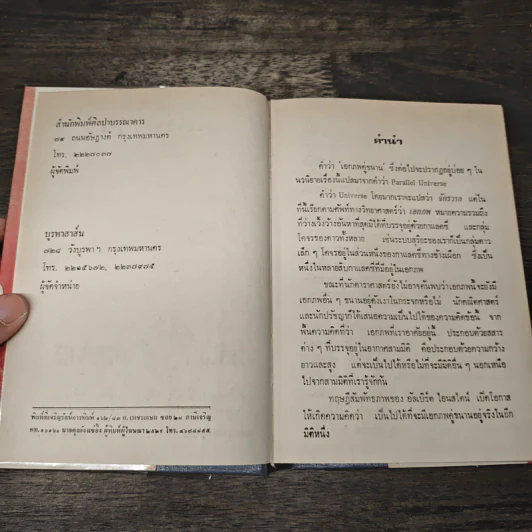 สำนักพิมพ์ศิลปาบรรณาคาร
๓๕ ถนนอัษฎางค์ กรุงเทพมหานคร
โทร. ๒๒๒๗๐๓๗
ผู้จัดพิมพ์
บูรพาสาส์น
๗๒๘ วังบูรพา ๆ กรุงเทพมหานคร
โทร. ๒๒๑๕๖๓๒,
ผู้จัดจำหน่าย
คำนำ
คำว่า "เอกภพคู่ขนาน" ซึ่งต่อไปจะปรากฏอยู่บ่อย ๆ ใน
นวนิยายเรื่องนี้แปลมาจากคำว่า Parallel Universe
คำว่า Universe โดยมากเราจะแปลว่า จักรวาล แต่ใน
ที่นี้เรียกตามศัพท์ทางวิทยาศาสตร์ว่า เอกภพ หมายความรวมถึง
ที่ว่างเวิ้งว้างอันหาที่สุดมิได้ที่บรรจุอยู่ด้วยกาแลคซี่ และกลุ่ม
โคจรของดาวทั้งหลาย เช่นระบบสุริยะของเราก็เป็นกลุ่มดาว
เล็ก ๆ โคจรอยู่ในส่วนหนึ่งของกาแลคซี่ทางช้างเผือก ซึ่งเป็น
หนึ่งในหลายสิบกาแลคซี่ที่มีอยู่ในเอกภพ
ขณะที่นักดาราศาสตร์ยังไม่อาจค้นพบว่าเอกภพนี้จะยังมี
เอกภพอื่น ๆ ขนานอยู่ดังเงาในกระจกหรือไม่ นักคณิตศาสตร์
และนักปรัชญาก็ได้เสนอความเป็นไปได้ของความคิดข้อนี้ จาก
พื้นความคิดที่ว่า เอกภพที่เราอาศัยอยู่นี้ ประกอบด้วยสสาร
ต่าง ๆ ที่บรรจุอยู่ในอากาศสามมิติ คือประกอบด้วยความกว้าง
ยาวและสูง แต่จะเป็นไปได้หรือไม่ที่จะมีมิติอื่น ๆ นอกเหนือ
ไปจากสามมิติที่เรารู้จักกัน
ทฤษฎีสัมพัทธภาพของ อัลเบิร์ต ไอนสไตน์ เปิดโอกาส
ให้เกิดความคิดว่า เป็นไปได้ที่จะมีเอกภพคู่ขนานอยู่จริงในอีก
มิติหนึ่ง